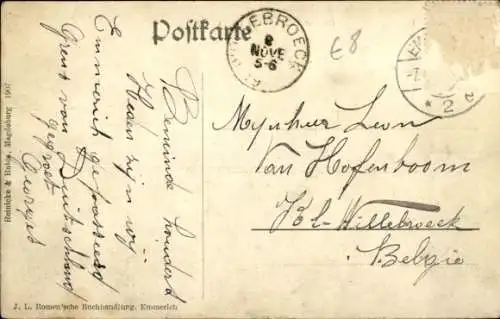 Postkarte
WILLEBROECK
8
NOVE
5-6
E8
2
Beminde
Heden zijn wij
Emmerich gepasseerd
Grens van Duitschland
gegroet
Georges
Mynheer Leon
Van Hofenboom
Kl-Willebroeck
Belgie
Reinicke & Rubin, Magdeburg 1907
J. L. Romen'sche Buchhandlung, Emmerich